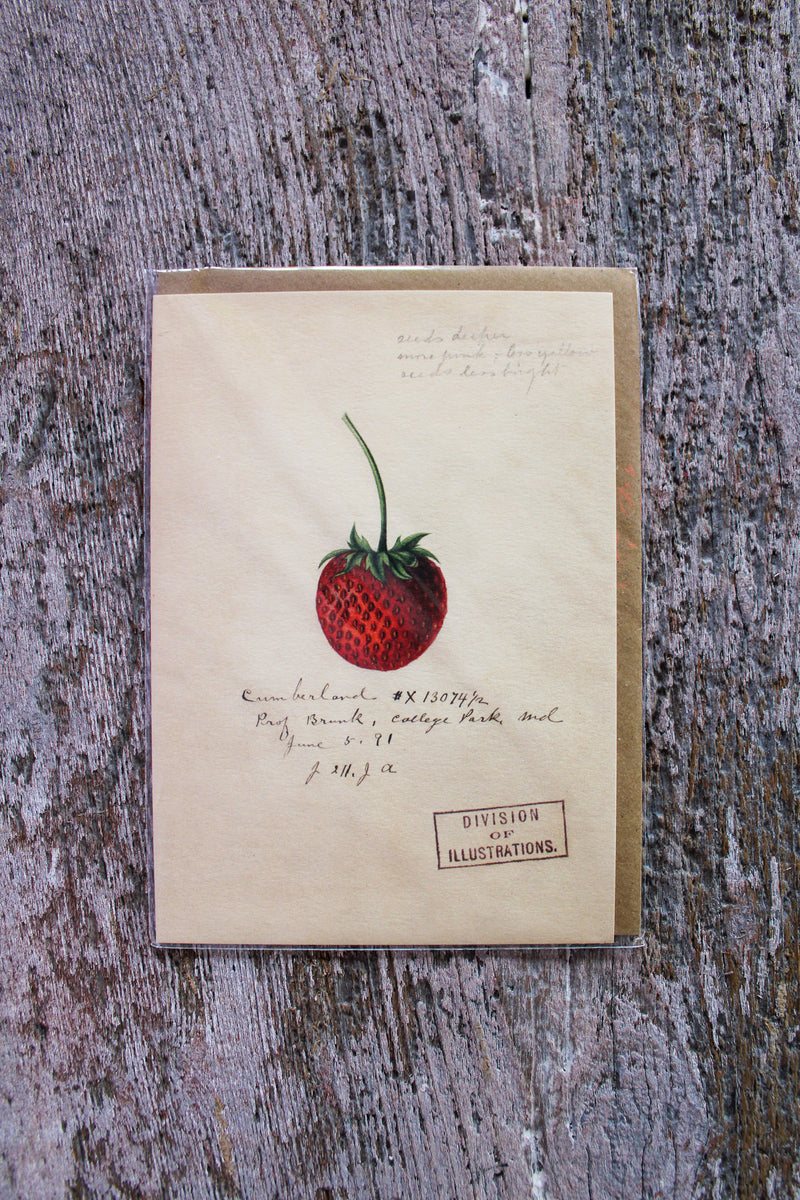 seeds deeper
more pink - less yellow
seeds less bright
Cumberland. #X 13074½
Prof Brunk, College Park, Md
June 5. 91
DIVISION
OF
ILLUSTRATIONS.